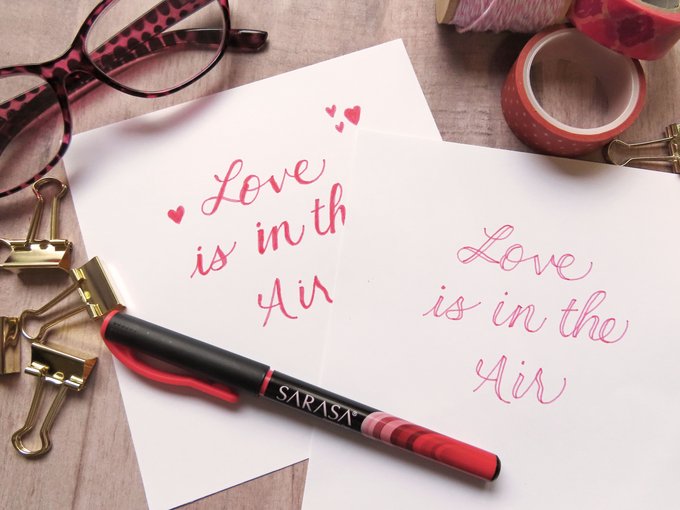 Love
is in th
Air
Love
is in the
Air
SARASA®